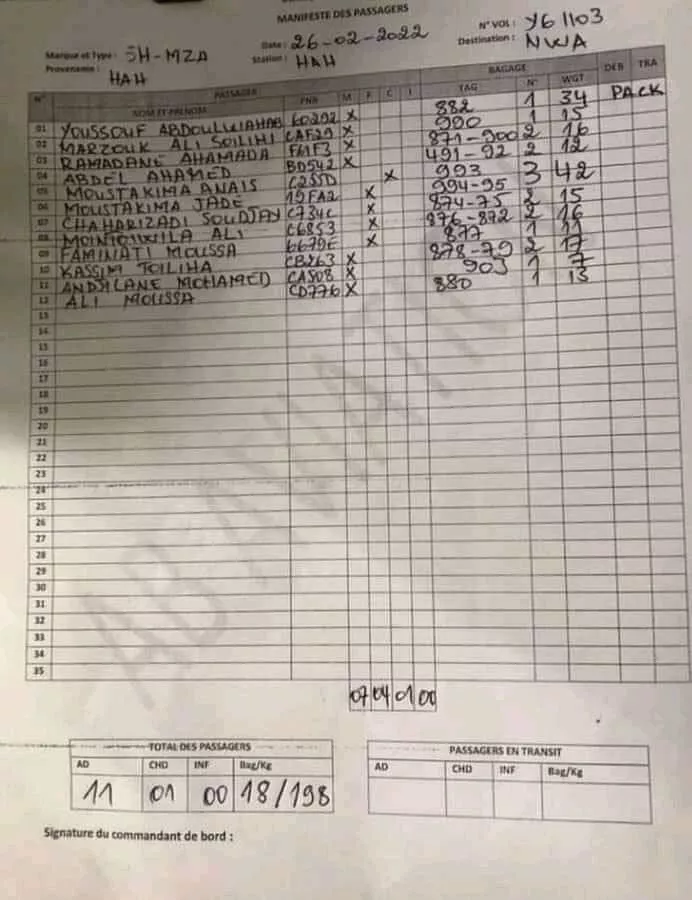 MANIFESTE DES PASSAGERS
Marque et Type : 5H-MZA Date : 26-02-2022 N° VOL : Y61103
Provenance : HAH Station : HAH Destination : NWA
PASSAGER BAGAGE
N° NOM ET PRENOM PNR M F C I TAG N° WGT DEB TRA
01 YOUSSOUF ABDOULWAHAB 60292 X 882 1 34 PACK
02 MARZOUK ALI SOILIHI CAF29 X 990 1 15
03 RAMADANE AHAMADA X 871-900 2 16
04 ABDEL AHAMED BD542 X 491-92 2 12
05 MOUSTAKIMA ANAIS C255D X 993
06 MOUSTAKIMA JADE 19FA2 X 994-95 3 42
07 CHAHARIZADI SOUDJAY C734C X 874-75 2 15
08 ALI C6853 X 876-872 2 16
09 FAMINATI MOUSSA 6679E X 877 1 11
10 KASSIM TOILIHA CB263 X 878-79 2 17
11 MOHAMED CA508 X 903 1 7
12 ALI MOUSSA CD776 X 880 1 13
13
14
15
16
17
18
19
20
21
22
23
24
25
26
27
28
29
30
31
32
33
34
35
07 04 01 00
TOTAL DES PASSAGERS
AD CHD INF Bag/Kg
11 01 00 18/198
PASSAGERS EN TRANSIT
AD CHD INF Bag/Kg
Signature du commandant de bord :
AB AVIATION